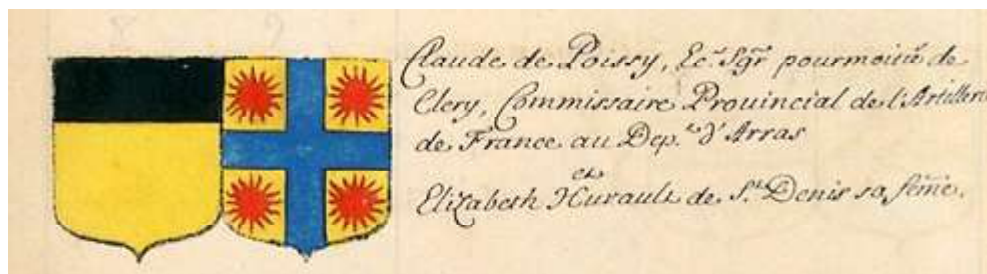 Claude de Poissy, Ec.r Sgr pourmoitié de
Clery, Commissaire Prouincial de l'Artillerie
de France au Dep.t d'Arras
et
Elizabeth Hurault de S.t Denis sa feme.